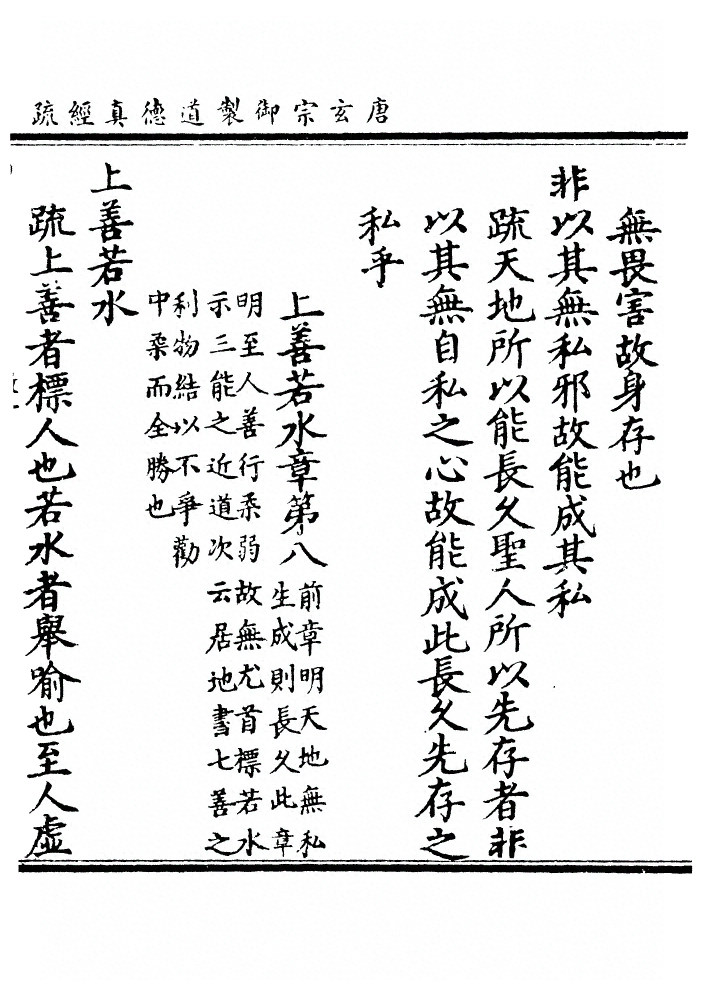 唐玄宗御製道德真經疏
無畏害故身存也
非以其無私邪故能成其私
疏天地所以能長久聖人所以先存者非
以其無自私之心故能成此長久先存之
私乎
上善若水章第八
前章明天地無私
生成則長久此章
明至人善行柔弱故無尤首標若水
示三能之近道次云居地書七善之
利物結以不爭勸
中柔而全勝也
上善若水
疏上善者標人也若水者舉喻也至人虛